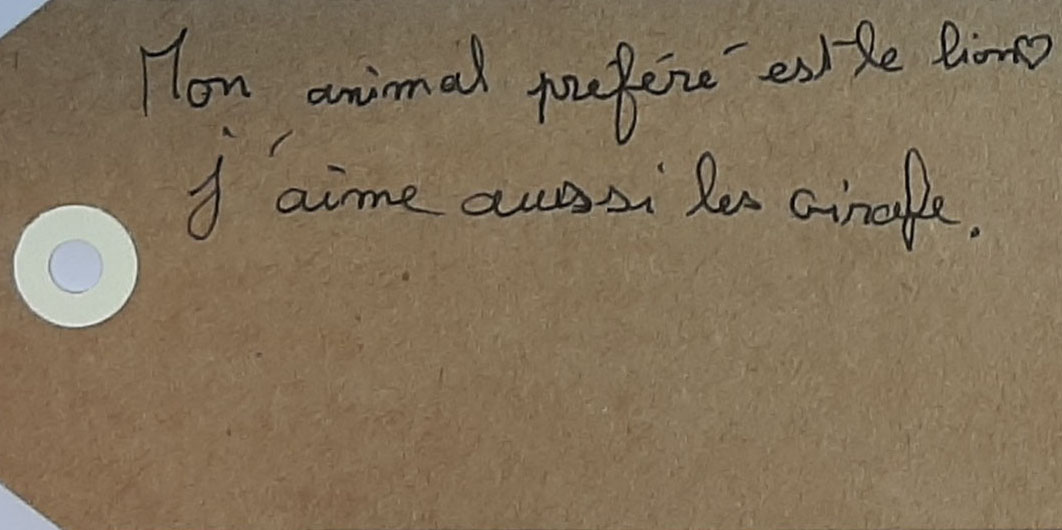 Mon animal preféré est le lion♡
j'aime aussi les girafe.